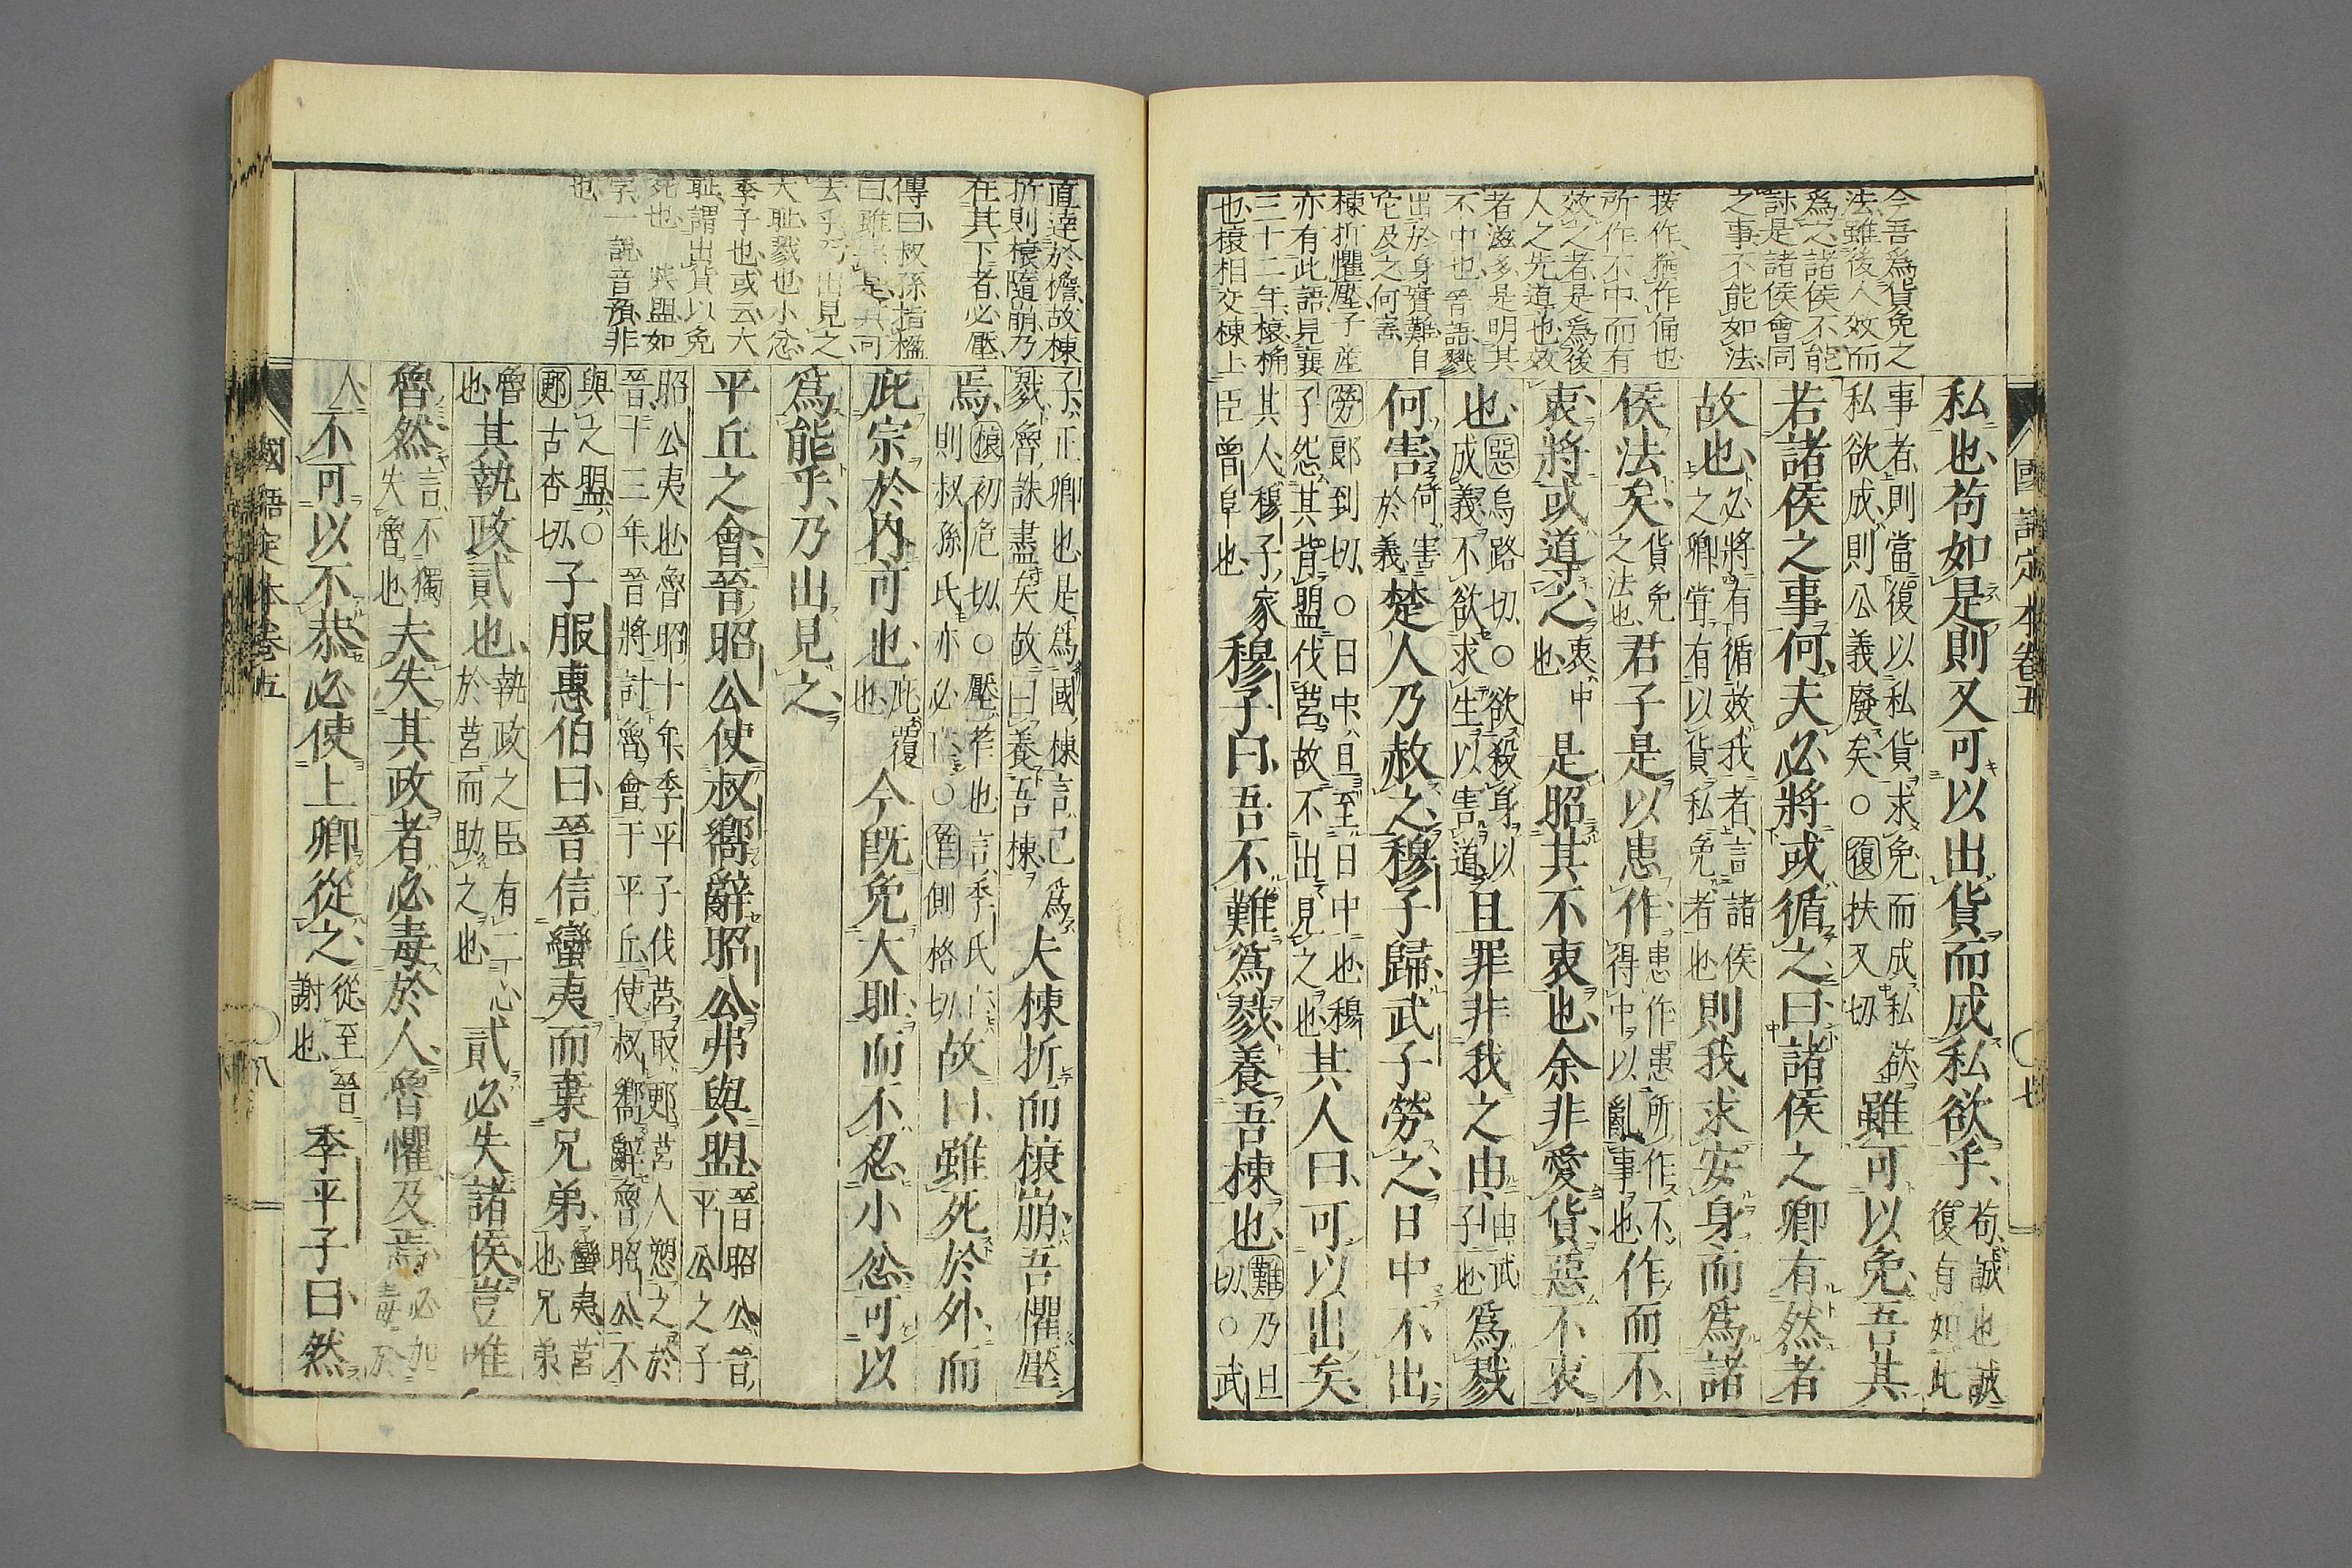 國語定本卷五
七
今吾爲貨免之
法雖後人效而
爲之諸侯不能
討是諸侯會同
之事不能如法
按作猶作俑也
所作不中而有
效之者是爲後
人之先道也效
者滋多是明其
不中也 晉語戮
出於身實難自
它及之何害
棟折懼壓子產
亦有此語見襄
三十二年榱桷
也榱相交棟上
私也苟如是則又可以出貨而成私欲乎苟誠也誠復有如此
事者則當復以私貨求免而成私欲私欲成則公義廢矣○復扶又切雖可以免吾其
若諸侯之事何夫必將或循之曰諸侯之卿有然者
故也必將有循效我者言諸侯之卿嘗有以貨私免者也則我求安身而爲諸
侯法矣貨免之法也君子是以患作患作患所作不得中以亂事也作而不
衷將或道之衷中也是昭其不衷也余非愛貨惡不衷
也惡烏路切○欲殺身以成義不欲求生以害道且罪非我之由由武子也爲戮
何害何害於義楚人乃赦之穆子歸武子勞之日中不出
勞郎到切○日中旦至日中也穆子怨其背盟伐莒故不出見之也其人曰可以出矣
其人穆子家臣曾阜也穆子曰吾不難爲戮養吾棟也難乃旦切○武
直達於檐故棟
折則榱隨崩乃
在其下者必壓
傳曰叔孫指楹
曰雖 是其可
去乎乃出見之
大恥戮也小忿
季子也或云大
恥謂出貨以免
死也 與盟如
字一説音預非
也
子正卿也是爲國棟言己爲戮魯誅盡矣故曰養吾棟夫棟折而榱崩吾懼壓
焉榱初危切○壓笮也言季氏亡則叔孫氏亦必亡○笮側格切故曰雖死於外而
庇宗於内可也庇覆也今既免大恥而不忍小忿可以
爲能乎乃出見之
平丘之會晉昭公使叔嚮辭昭公弗與盟晉昭公晉平公之子
昭公夷也魯昭十年季平子伐莒取郠莒人愬之於晉十三年晉將討魯會于平丘使叔嚮辭魯昭公不
與之盟○郠古杏切子服惠伯曰晉信蠻夷而棄兄弟蠻夷莒也兄弟
魯也其執政貳也執政之臣有二心於莒而助之也貳必失諸侯豈唯
魯然言不獨失魯也夫失其政者必毒於人魯懼及焉必加毒於
人不可以不恭必使上卿從之從至晉謝也季平子曰然
國語定本卷五
八